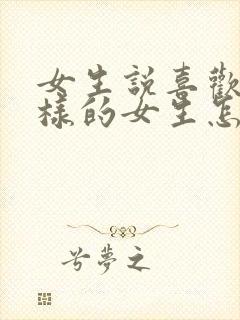 女生説喜歡
樣的女生怎
兮夢之